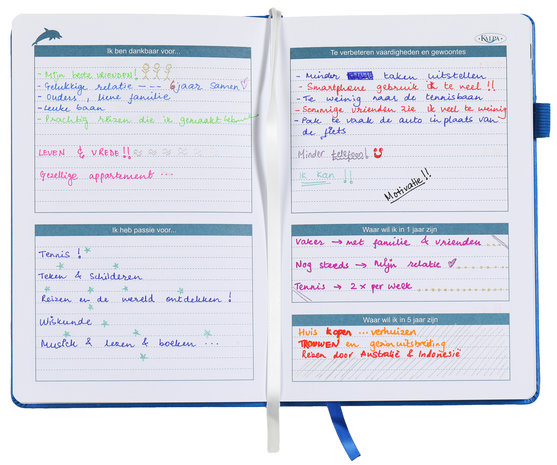 Ik ben dankbaar voor...
- Mijn beste VRIENDEN!
- Gelukkige relatie --- 6 jaar samen
- Ouders, lieve familie
- Leuke baan
- Prachtig reizen die ik gemaakt heb
LEVEN & VREDE!!
Gezellige appartement ...
Ik heb passie voor...
Tennis !
Teken & Schilderen
Reizen en de wereld ontdekken !
Wiskunde
Muziek & lezen & boeken ...
KALPA
Te verbeteren vaardigheden en gewoontes
- Minder taken uitstellen
- Smartphone gebruik ik te veel !!
- Te weinig naar de tennisbaan
- Sommige vrienden zie ik veel te weinig
- Pak te vaak de auto in plaats van
de fiets
Minder telefoon!
IK kan !!
Motivatie!!
Waar wil ik in 1 jaar zijn
Vaker → met familie & vrienden
Nog steeds → Mijn relatie
Tennis → 2x per week
Waar wil ik in 5 jaar zijn
Huis kopen ... verhuizen
TROUWEN en gezinsuitbreiding
Reizen door Australië & Indonesië